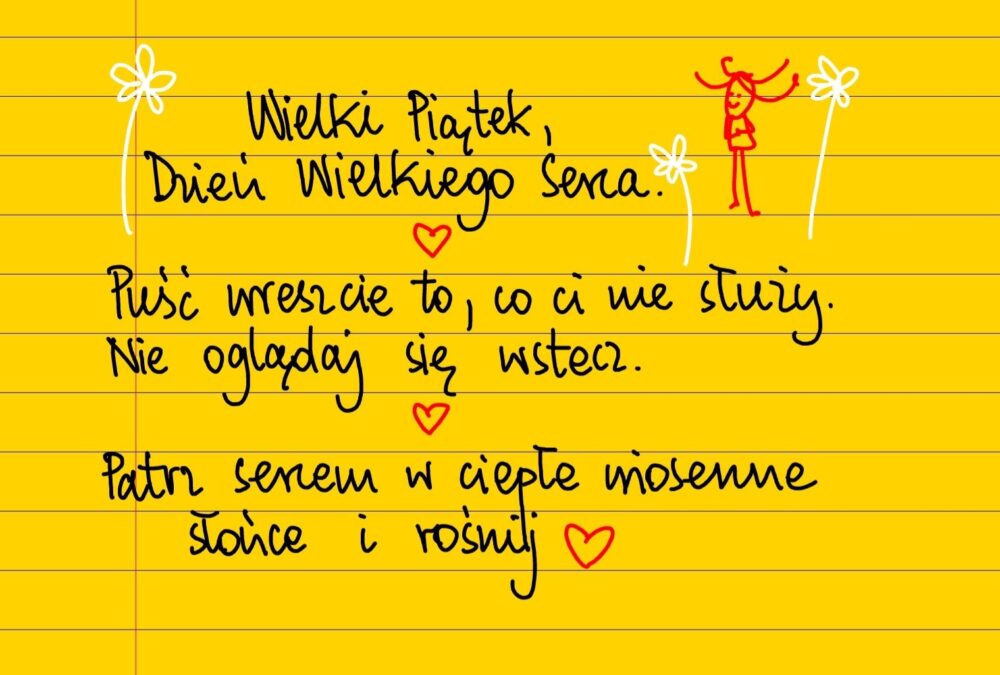 Wielki Piątek,
Dzień Wielkiego Serca.
Puść wreszcie to, co ci nie służy.
Nie oglądaj się wstecz.
Patrz sercem w ciepłe wiosenne
słońce i rośnij